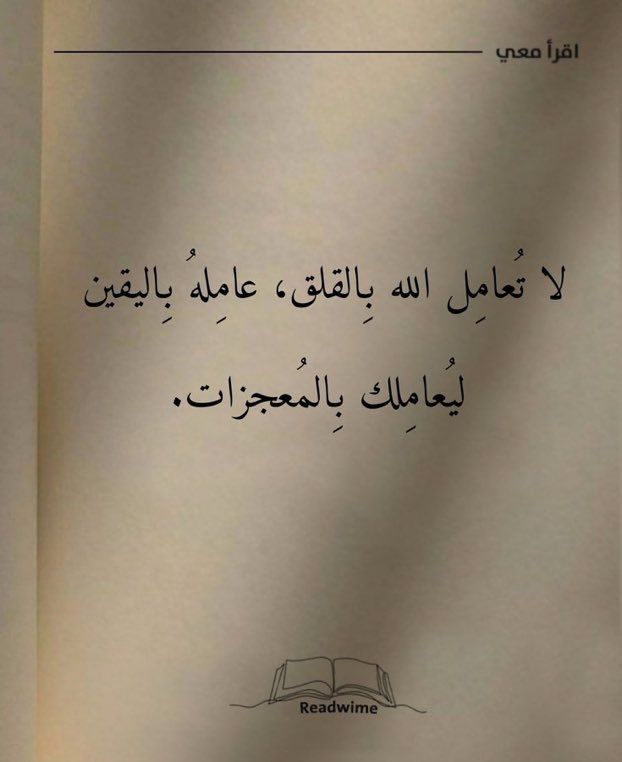 اقرأ معي
لا تُعامِل الله بِالقلق، عامِلهُ بِاليقين
ليُعامِلك بِالمُعجزات.
Readwime